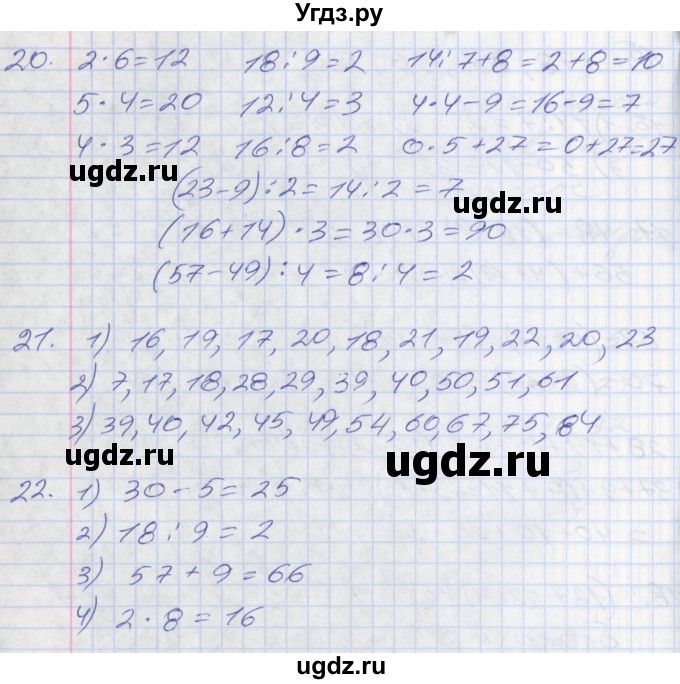 Угдз.ру
20. 2·6=12 18:9=2 14:7+8=2+8=10
5·4=20 12:4=3 4·4-9=16-9=7
4·3=12 16:8=2 0·5+27=0+27=27
ugdz.ru
(23-9):2=14:2=7
ugdz.ru
(16+14)·3=30·3=90
(57-49):4=8:4=2
21. 1) 16, 19, 17, 20, 18, 21, 19, 22, 20, 23
2) 7, 17, 18, 28, 29, 39, 40, 50, 51, 61
3) 39, 40, 42, 45, 49, 54, 60, 67, 75, 84
ugdz.ru ugdz.ru
22. 1) 30-5=25
2) 18:9=2
3) 57+9=66
4) 2·8=16
ugdz.ru
ugdz.ru